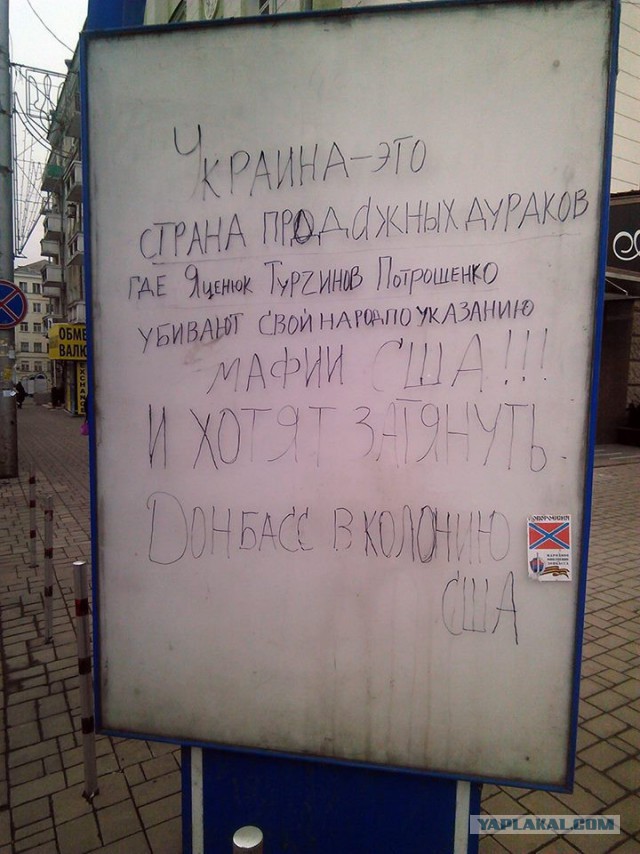 Украина - это
страна продажных дураков
где Яценюк Турчинов Потрошенко
убивают свой народ по указанию
мафии США!!!
и хотят затянуть
Донбасс в колонию
США
ОБМЕ
ВАЛЮ
EXCHANG
НОВОРОССИЯ
YAPLAKAL.COM